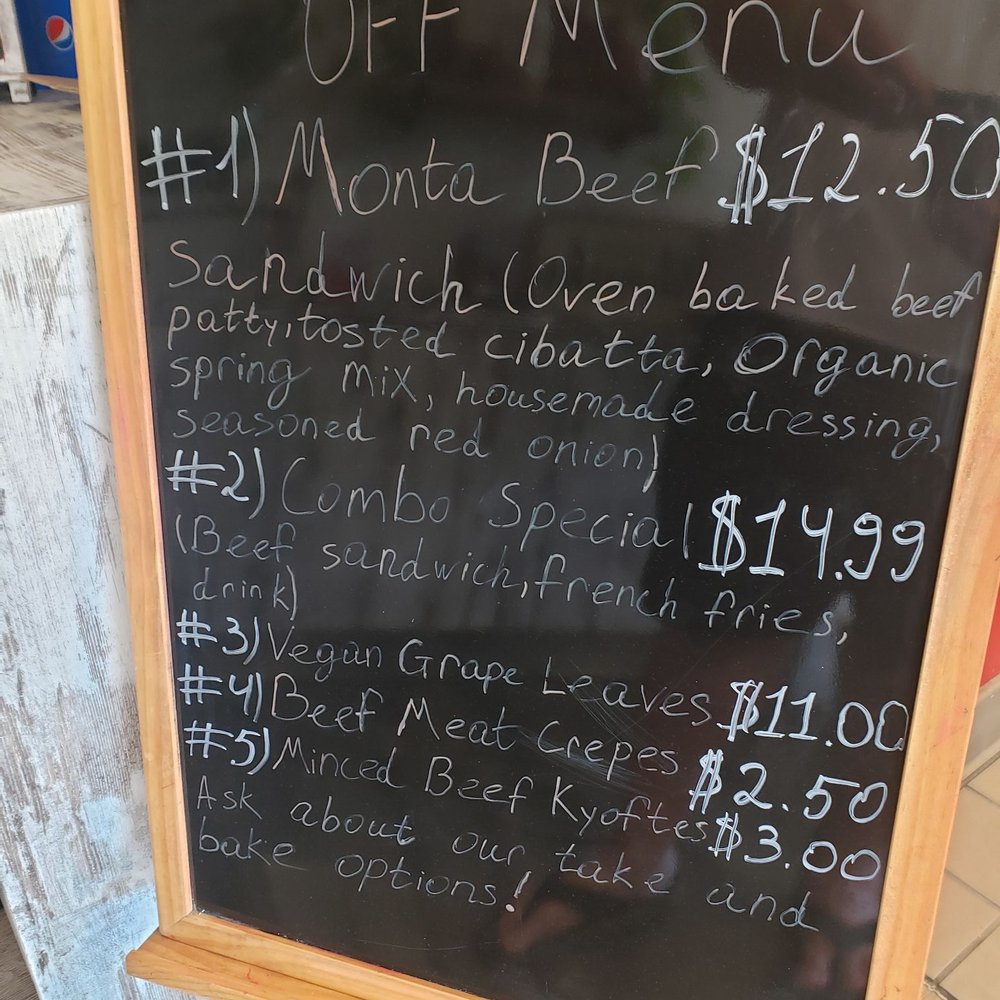 Off Menu
#1) Monta Beef $12.50
Sandwich (Oven baked beef
patty, tosted cibatta, Organic
spring mix, housemade dressing,
seasoned red onion)
#2) Combo Special $14.99
(Beef sandwich, french fries,
drink)
#3) Vegan Grape Leaves $11.00
#4) Beef Meat Crepes $2.50
#5) Minced Beef Kyoftes $3.00
Ask about our take and
bake options!